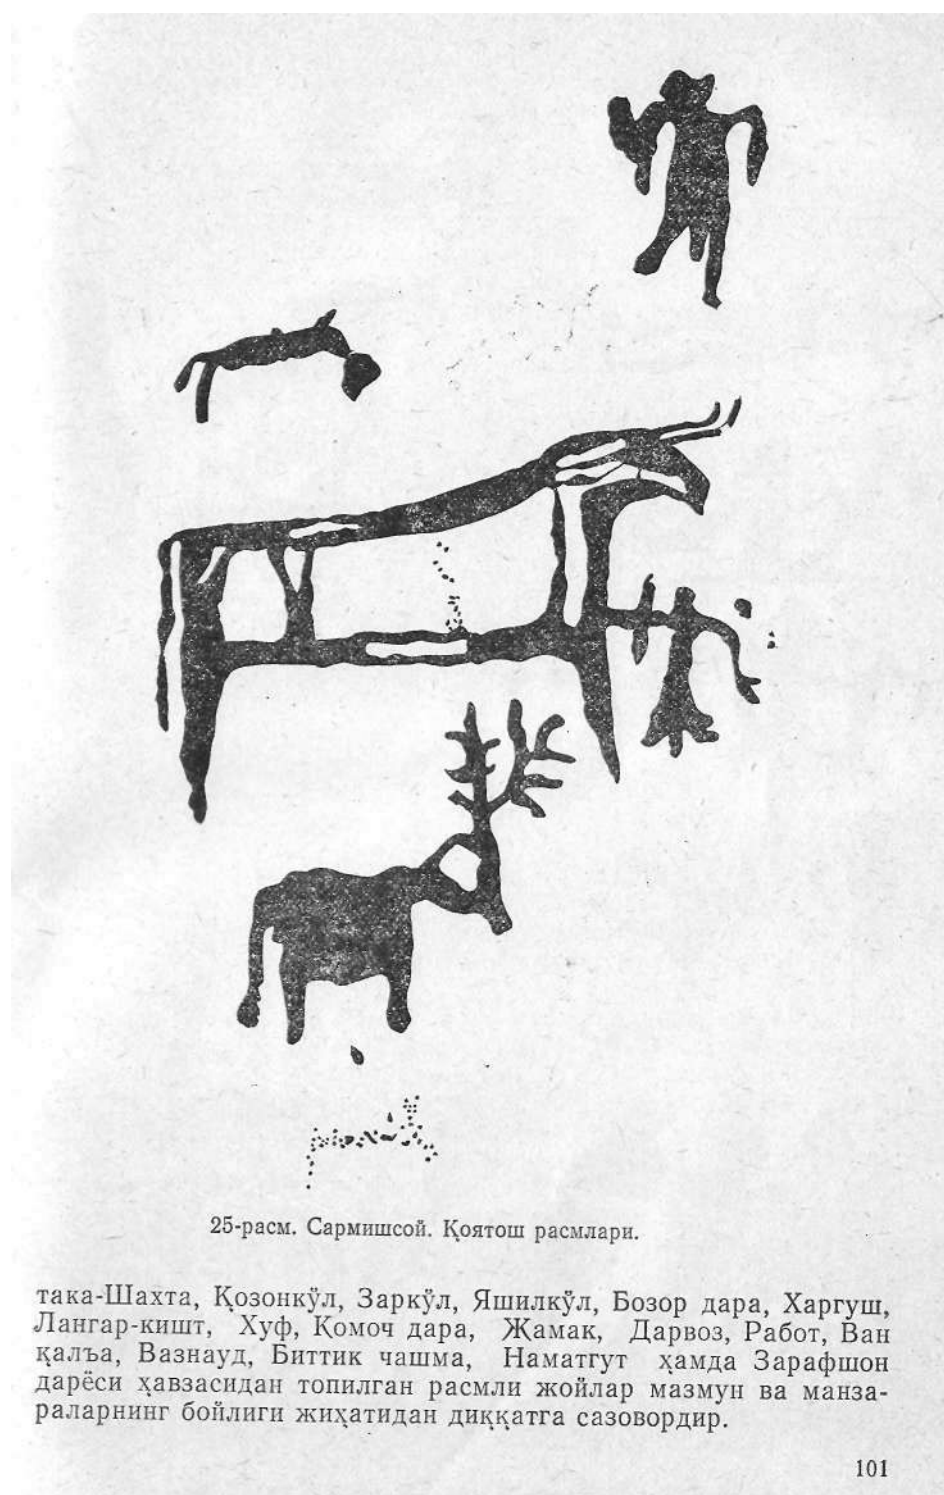 25-расм. Сармишсой. Қоятош расмлари.
така-Шахта, Қозонкўл, Заркўл, Яшилкўл, Бозор дара, Харгуш,
Лангар-кишт, Хуф, Комоч дара, Жамак, Дарвоз, Работ, Ван
қалъа, Вазнауд, Биттик чашма, Наматгут ҳамда Зарафшон
дарёси ҳавзасидан топилган расмли жойлар мазмун ва манза-
раларнинг бойлиги жиҳатидан диққатга сазовордир.
101